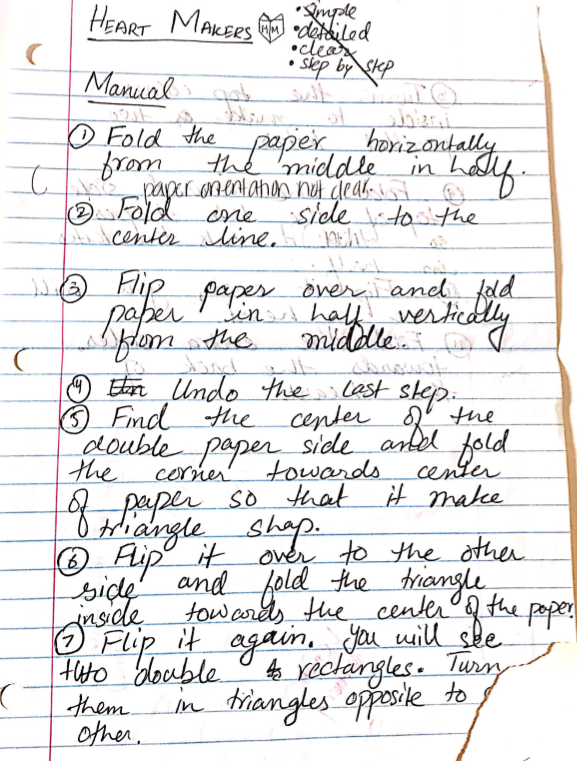 HEART MAKERS HM
• Simple
• detailed
• clear
• step by step
Manual
① Fold the paper horizontally
from the middle in half.
paper orientation not clear.
② Fold one side to the
center line.
③ Flip paper over and fold
paper in half vertically
from the middle.
④ Undo the last step.
⑤ Find the center of the
double paper side and fold
the corner towards center
of paper so that it make
triangle shap.
⑥ Flip it over to the other
side and fold the triangle
inside towards the center of the paper.
⑦ Flip it again. You will see
two double rectangles. Turn
them in triangles opposite to
other.